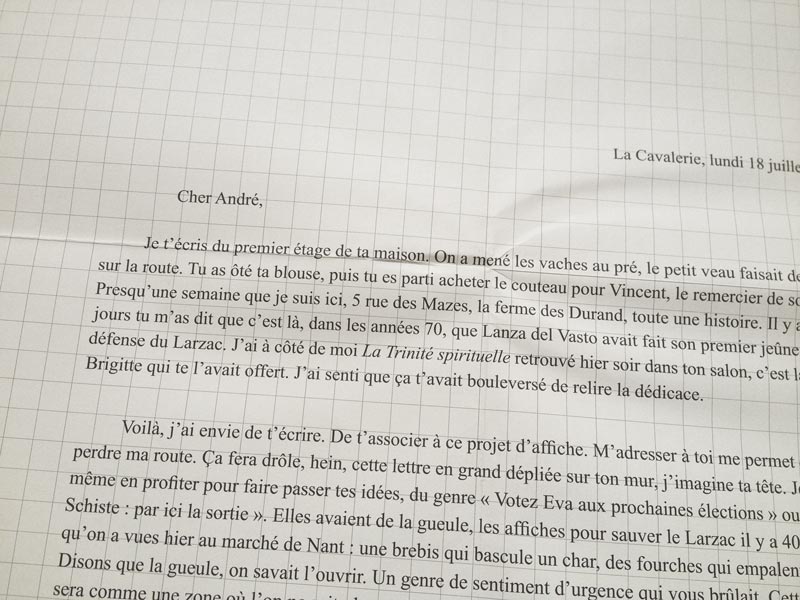 La Cavalerie, lundi 18 juille
Cher André,
Je t’écris du premier étage de ta maison. On a mené les vaches au pré, le petit veau faisait de
sur la route. Tu as ôté ta blouse, puis tu es parti acheter le couteau pour Vincent, le remercier de so
Presqu’une semaine que je suis ici, 5 rue des Mazes, la ferme des Durand, toute une histoire. Il y a
jours tu m’as dit que c’est là, dans les années 70, que Lanza del Vasto avait fait son premier jeûne
défense du Larzac. J’ai à côté de moi La Trinité spirituelle retrouvé hier soir dans ton salon, c’est l
Brigitte qui te l’avait offert. J’ai senti que ça t’avait bouleversé de relire la dédicace.
Voilà, j’ai envie de t’écrire. De t’associer à ce projet d’affiche. M’adresser à toi me permet
perdre ma route. Ça fera drôle, hein, cette lettre en grand dépliée sur ton mur, j’imagine ta tête. J
même en profiter pour faire passer tes idées, du genre « Votez Eva aux prochaines élections » ou
Schiste : par ici la sortie ». Elles avaient de la gueule, les affiches pour sauver le Larzac il y a 40
qu’on a vues hier au marché de Nant : une brebis qui bascule un char, des fourches qui empalen
Disons que la gueule, on savait l’ouvrir. Un genre de sentiment d’urgence qui vous brûlait. Cett
sera comme une zone où l’on